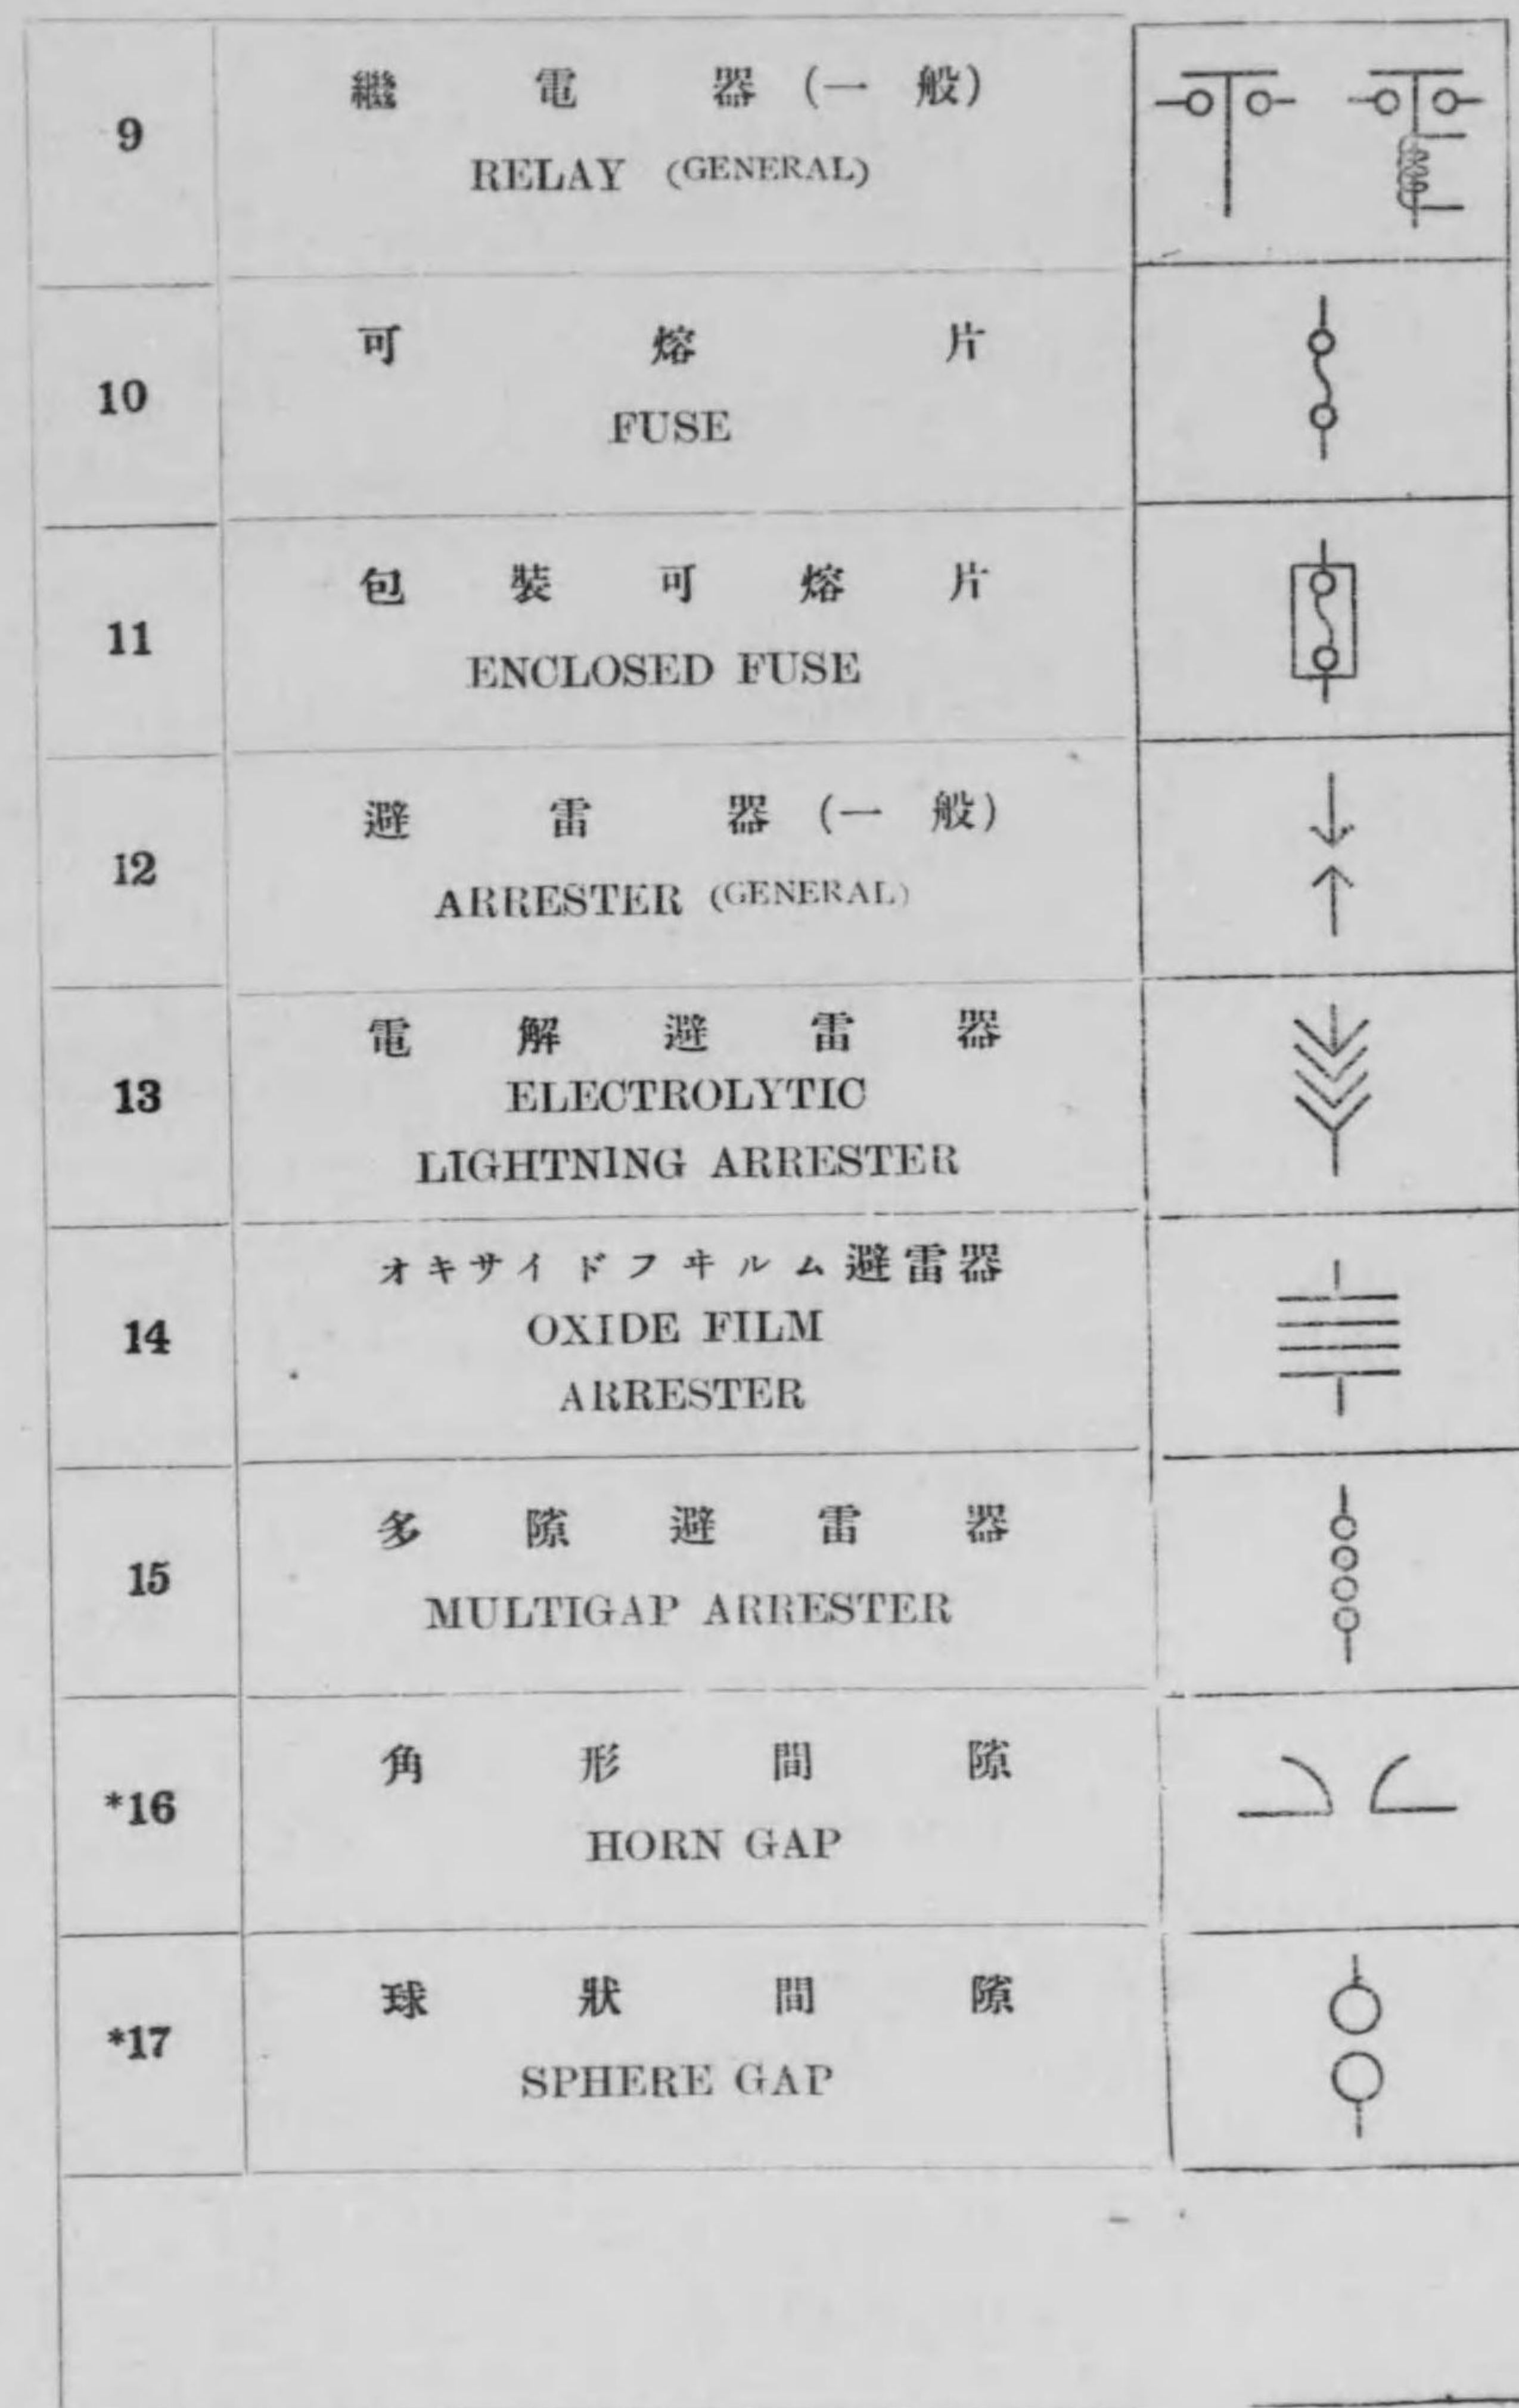 9
繼電器(一般)
RELAY (GENERAL)
10
可熔片
FUSE
11
包裝可熔片
ENCLOSED FUSE
12
避雷器(一般)
ARRESTER (GENERAL)
13
電解避雷器
ELECTROLYTIC
LIGHTNING ARRESTER
14
オキサイドフヰルム避雷器
OXIDE FILM
ARRESTER
15
多隙避雷器
MULTIGAP ARRESTER
*16
角形間隙
HORN GAP
*17
球狀間隙
SPHERE GAP